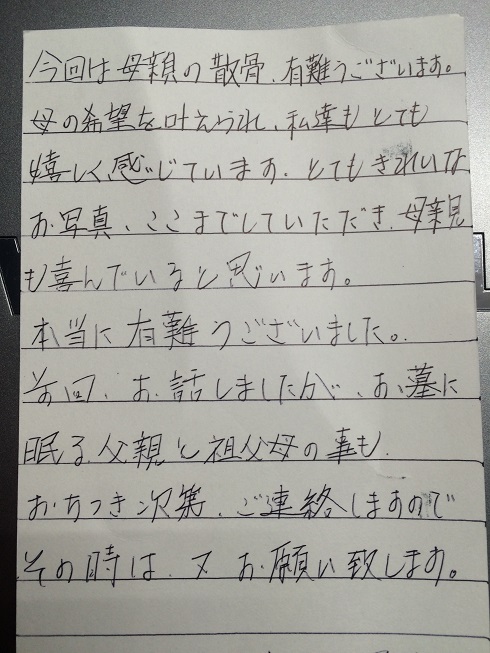 今回は母親の散骨、有難うございます。
母の希望を叶えられ、私達もとても
嬉しく感じています。とてもきれいな
お写真、ここまでしていただき、母親
も喜んでいると思います。
本当に有難うございました。
前回、お話しましたが、お墓に
眠る、父親と祖父母の事も、
おちつき次第、ご連絡しますので
その時は、又お願い致します。